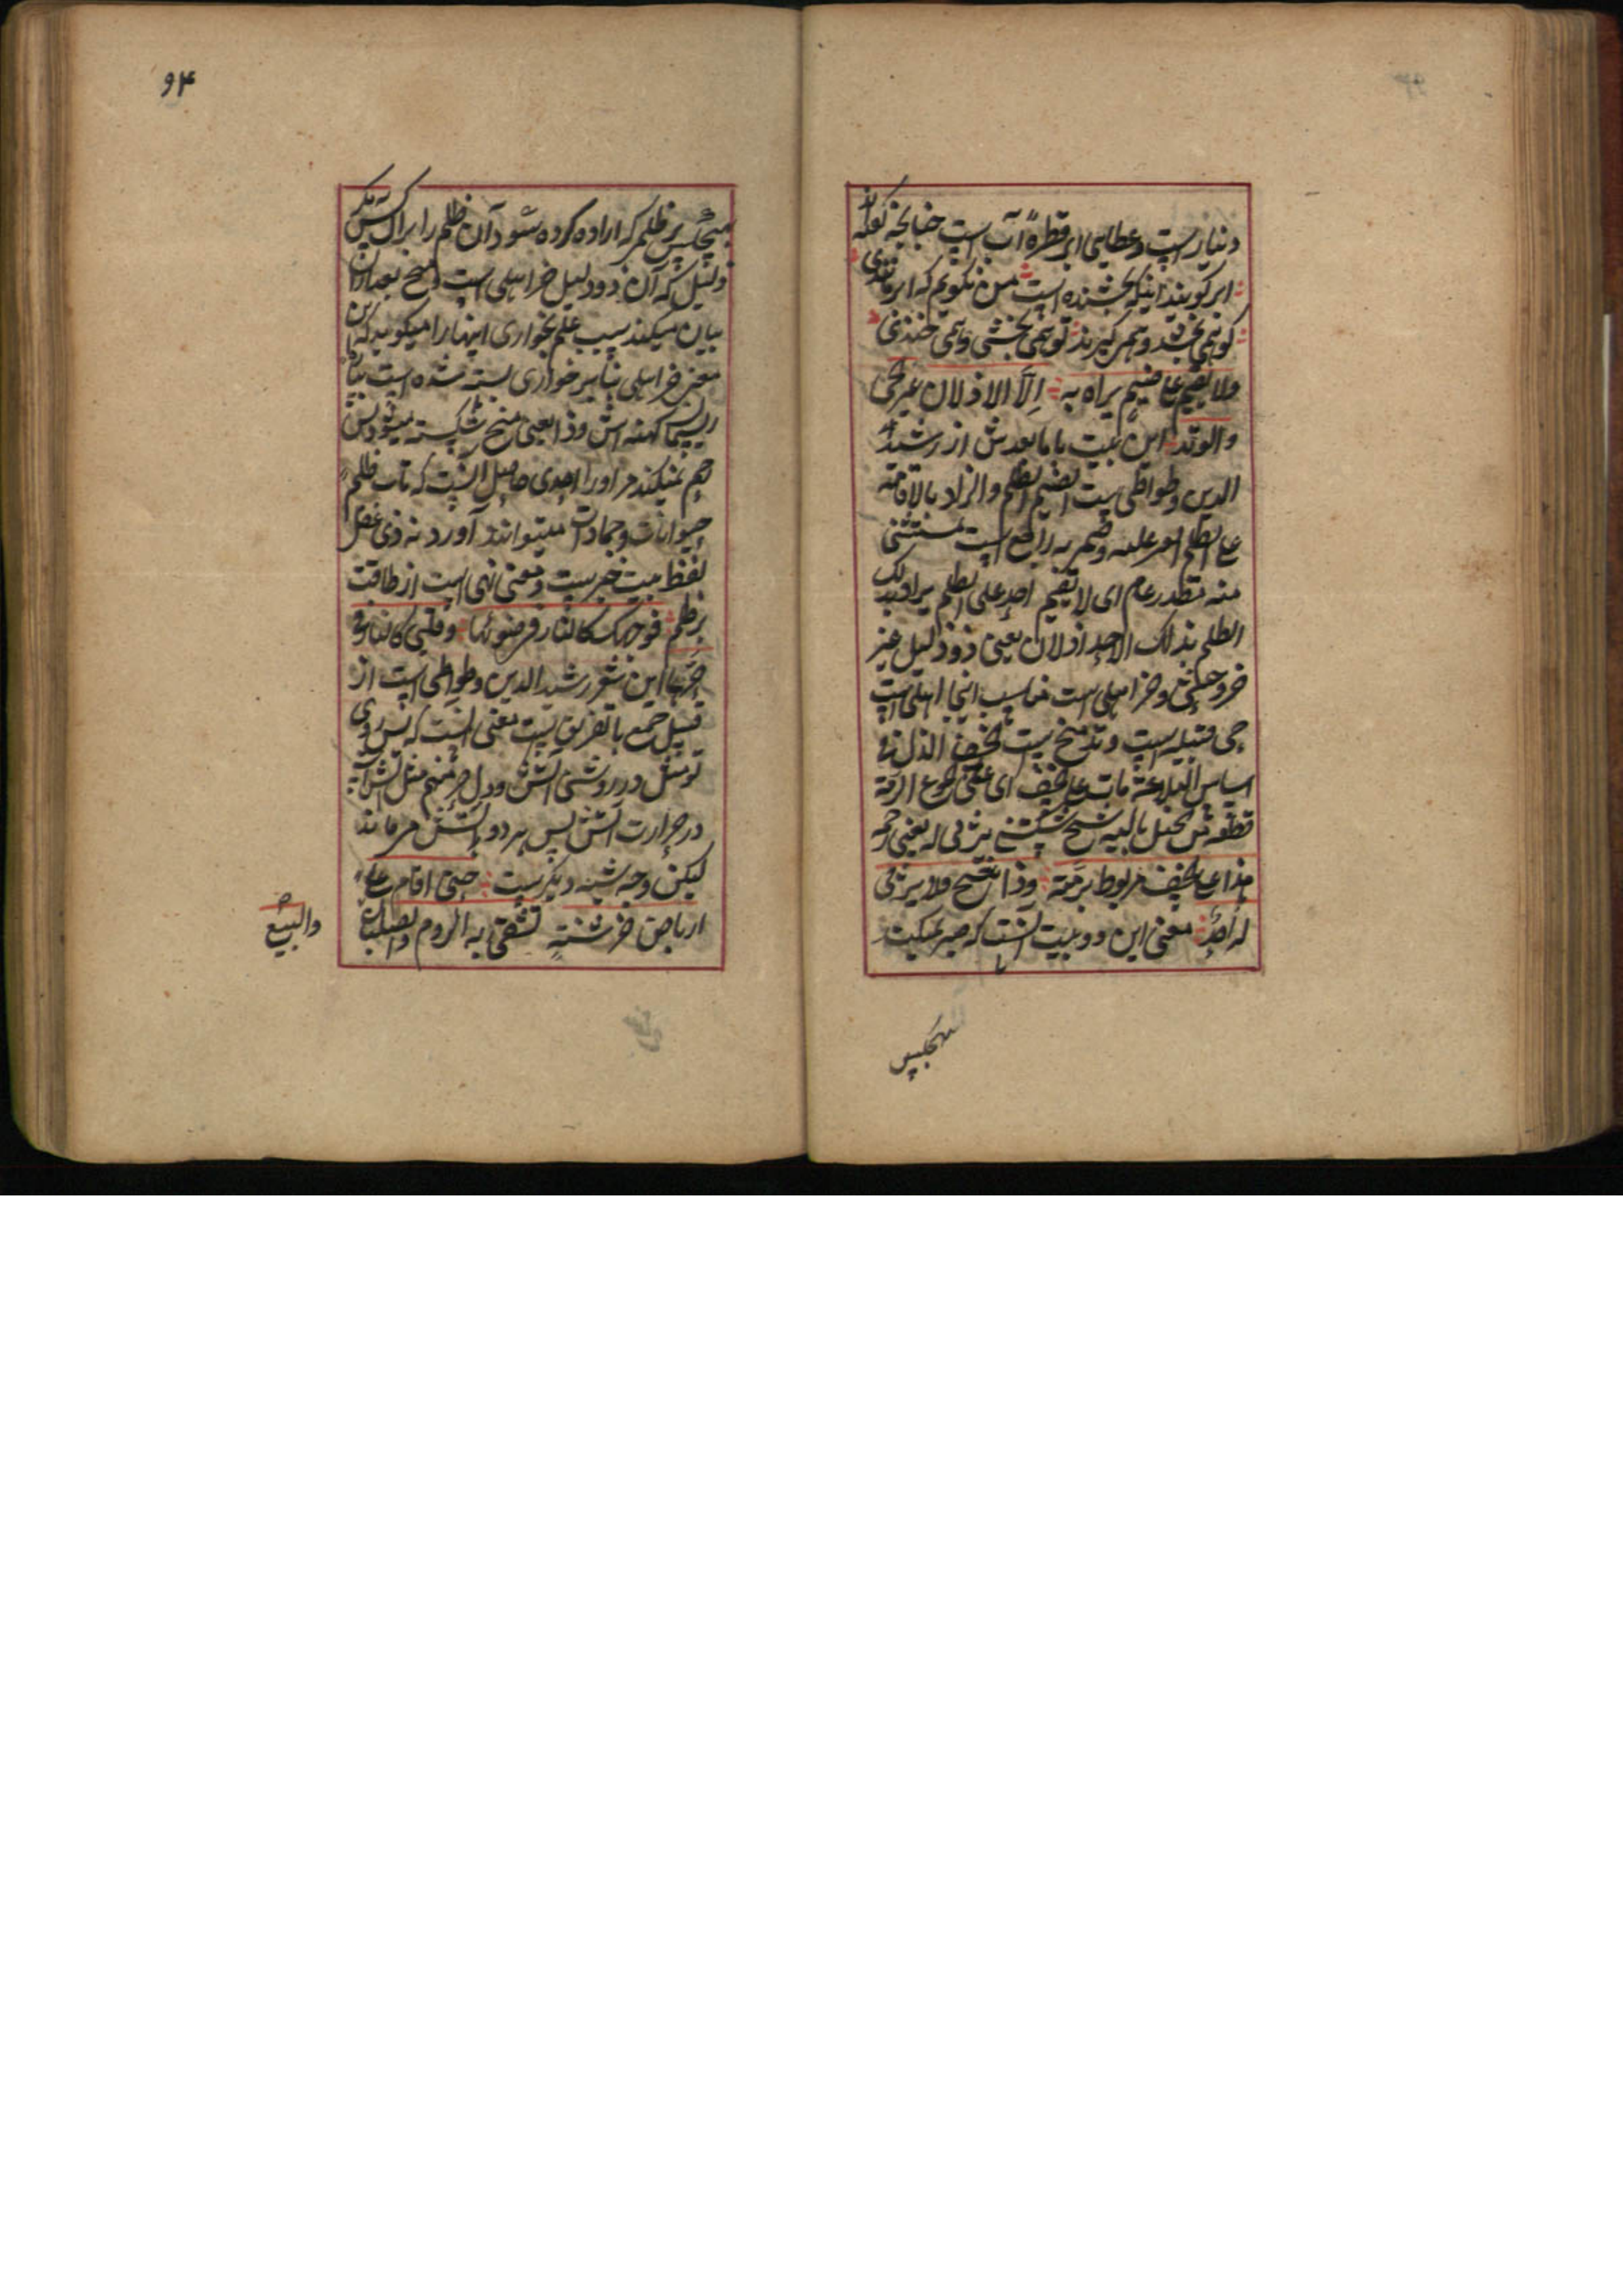 دنیارست و عطای ابر قطرهٔ آب است چنانچه گفته اند
ابر گویند اینکه بخشنده است من نگویم که ابر مانندی
کو همی بخشد و همی گرید تو همی بخشی و همی خندی
ولا یقیم علی ضیم یراد به الا الاذلان عیر الحی
والوتد این بیت با ما بعدش از رشید
الدین وطواط است الضیم الظلم والمراد بالاقامة
علی الظلم الصبر علیه وضمیر به راجع است بمستثنی
منه مقدر عام ای لا یقیم احد علی الظلم یراد ذلک
الظلم بذلک الاحد الاذلان یعنی دو ذلیل عیر
خر وحشی و خر اهلی است مناسب اینجا اهلی است
حی قبیله است وتد میخ است خسف الذل فی
اساس البلاغة بات علی الخسف ای علی الجوع الرمة
قطعه من الحبل بالیه شج شکستن یرثی له یعنی رحم
هذا علی الخسف مربوط برمته وذا یشج ولا یرثی
له احد معنی این دو بیت آنست که صبر نمیکند
هیچکس
۹۴
هیچکس بر ظلم که اراده کرده شود آن ظلم را بر آن کس مگر
ذلیل که آن دو ذلیل خر اهلی است و میخ بعد از آن
بیان میکند سبب علم بخواری اینها را میگوید که این
یعنی خر اهلی بنابر خواری بسته شده است بپاره
ریسمان کهنه اش وذا یعنی میخ شکسته میشود پس
رحم نمیکند مر او را احدی حاصل آنست که تاب ظلم
حیوانات و جمادات میتوانند آورد نه ذی عقل
لفظ بیت خبرست و معنی نهی است از طاقت
بر ظلم فوجهک کالنار فی ضوئها وقلبی کالنار فی
حرها این شعر رشید الدین وطواط است از
قبیل جمع با تفریق است معنی آنست که پس روی
تو مثل در روشنی آتش و دل من مثل آتش است
در حرارت آتش پس هر دو بآتش میماند
لیکن وجه شبه دیگرست حتی اقام علی
ارباض خرشنة تشقی به الروم والصلبان
والبیع